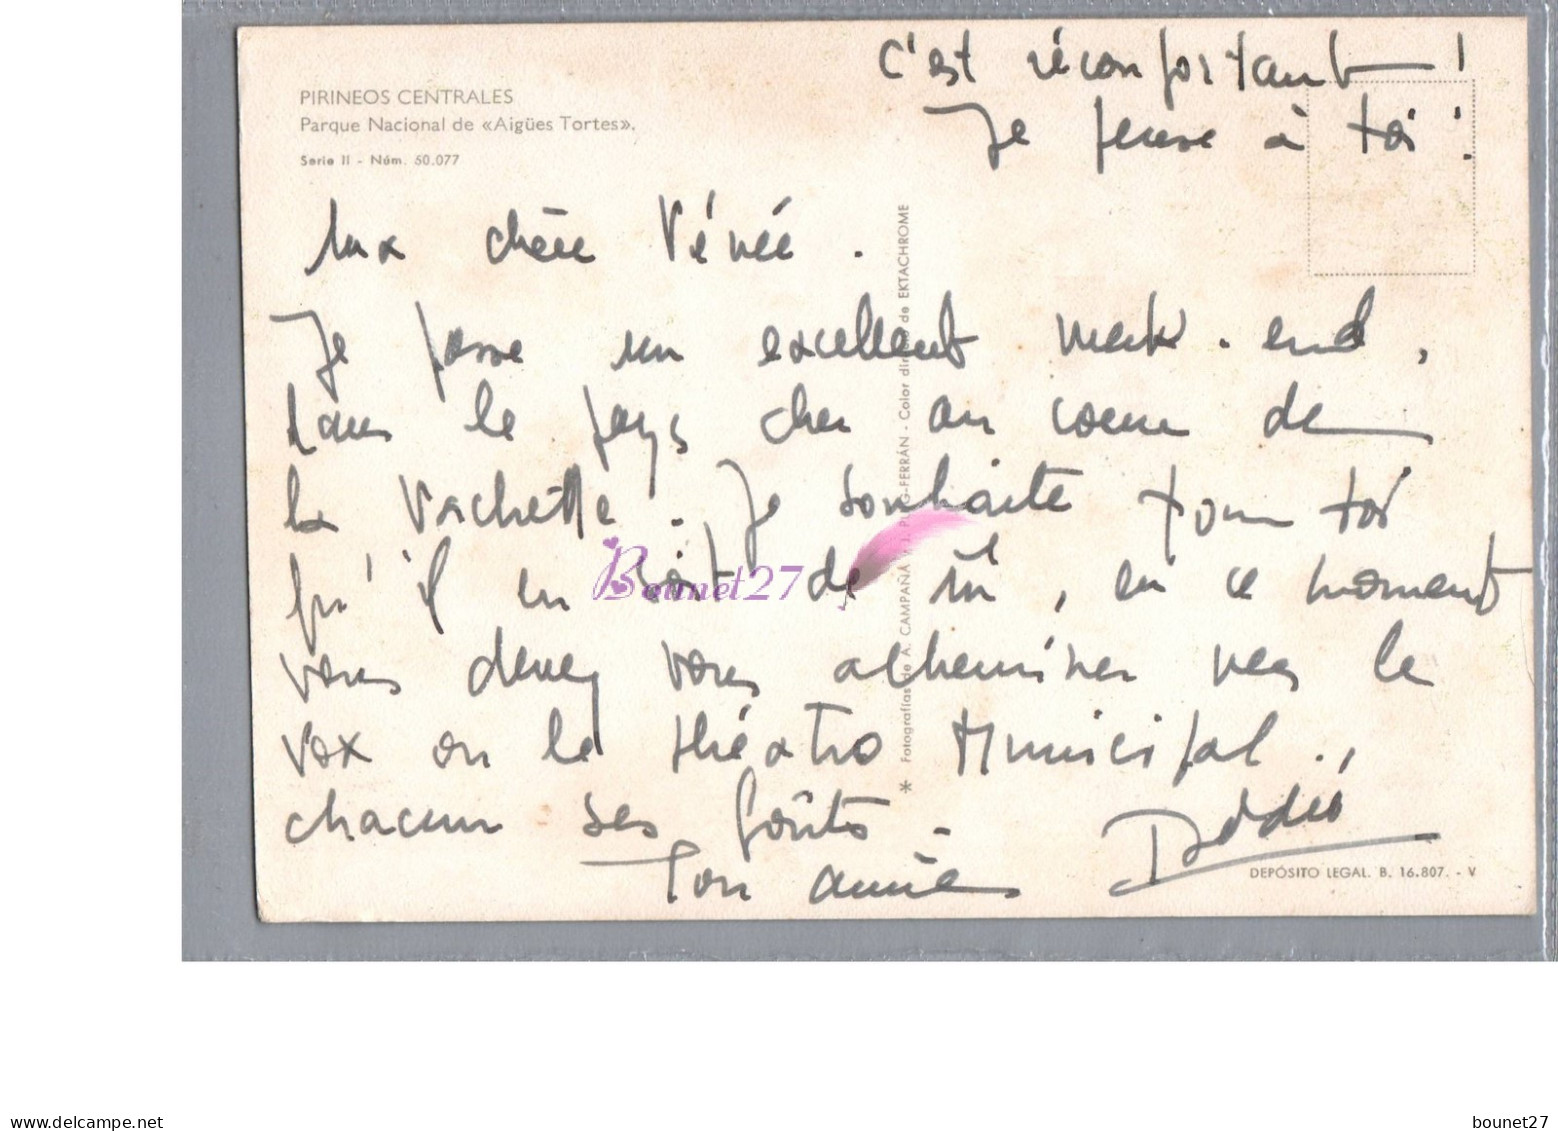 C'est réconfortant !
Je pense à toi !
PIRINEOS CENTRALES
Parque Nacional de «Aigües Tortes».
Serie II - Núm. 50.077
Ma chère Vénéé.
Je passe un excellent week-end,
dans le pays cher au coeur de
la Vachette. Je souhaite pour toi
qu'il en soit de m̂, en ce moment
vous devez vous acheminer vers le
Vox ou le théatro Municipal.,
chacun ses goûts.
Ton amie
* Fotografías de A. CAMPAÑA y J. PUIG-FERRÁN - Color directo de EKTACHROME
Bounet27
DEPÓSITO LEGAL. B. 16.807. - V
www.delcampe.net
bounet27